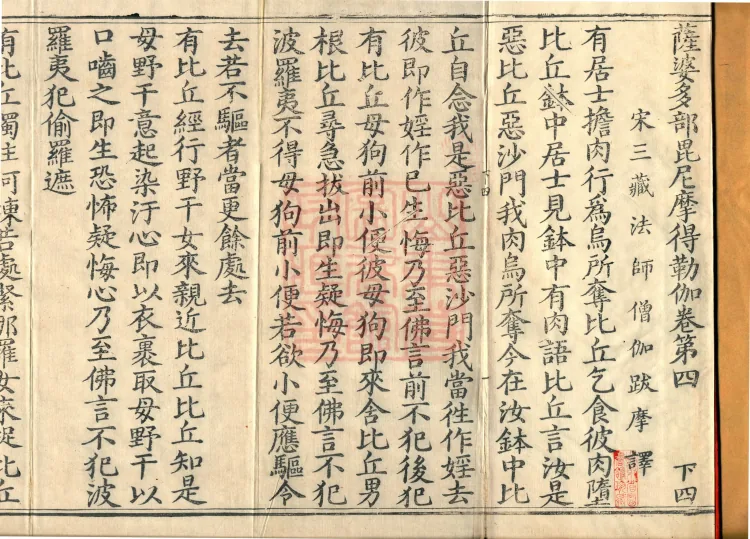 薩婆多部毘尼摩得勒伽卷第四 下四
宋三藏法師僧伽跋摩譯
有居士擔肉行爲烏所奪比丘乞食彼肉墮
比丘鉢中居士見鉢中有肉語比丘言汝是
惡比丘惡沙門我肉烏所奪今在汝鉢中比
丘自念我是惡比丘惡沙門我當徃作婬去
彼即作婬作已生悔乃至佛言前不犯後犯
有比丘母狗前小便彼母狗即來含比丘男
根比丘尋急拔出即生疑悔乃至佛言不犯
波羅夷不得母狗前小便若欲小便應驅令
去若不驅者當更餘處去
有比丘經行野干女來親近比丘比丘知是
母野干意起染汙心即以衣裹取母野干以
口嚙之即生恐怖疑悔心乃至佛言不犯波
羅夷犯偷羅遮
有比丘獨住阿練若處緊那羅女來捉比丘